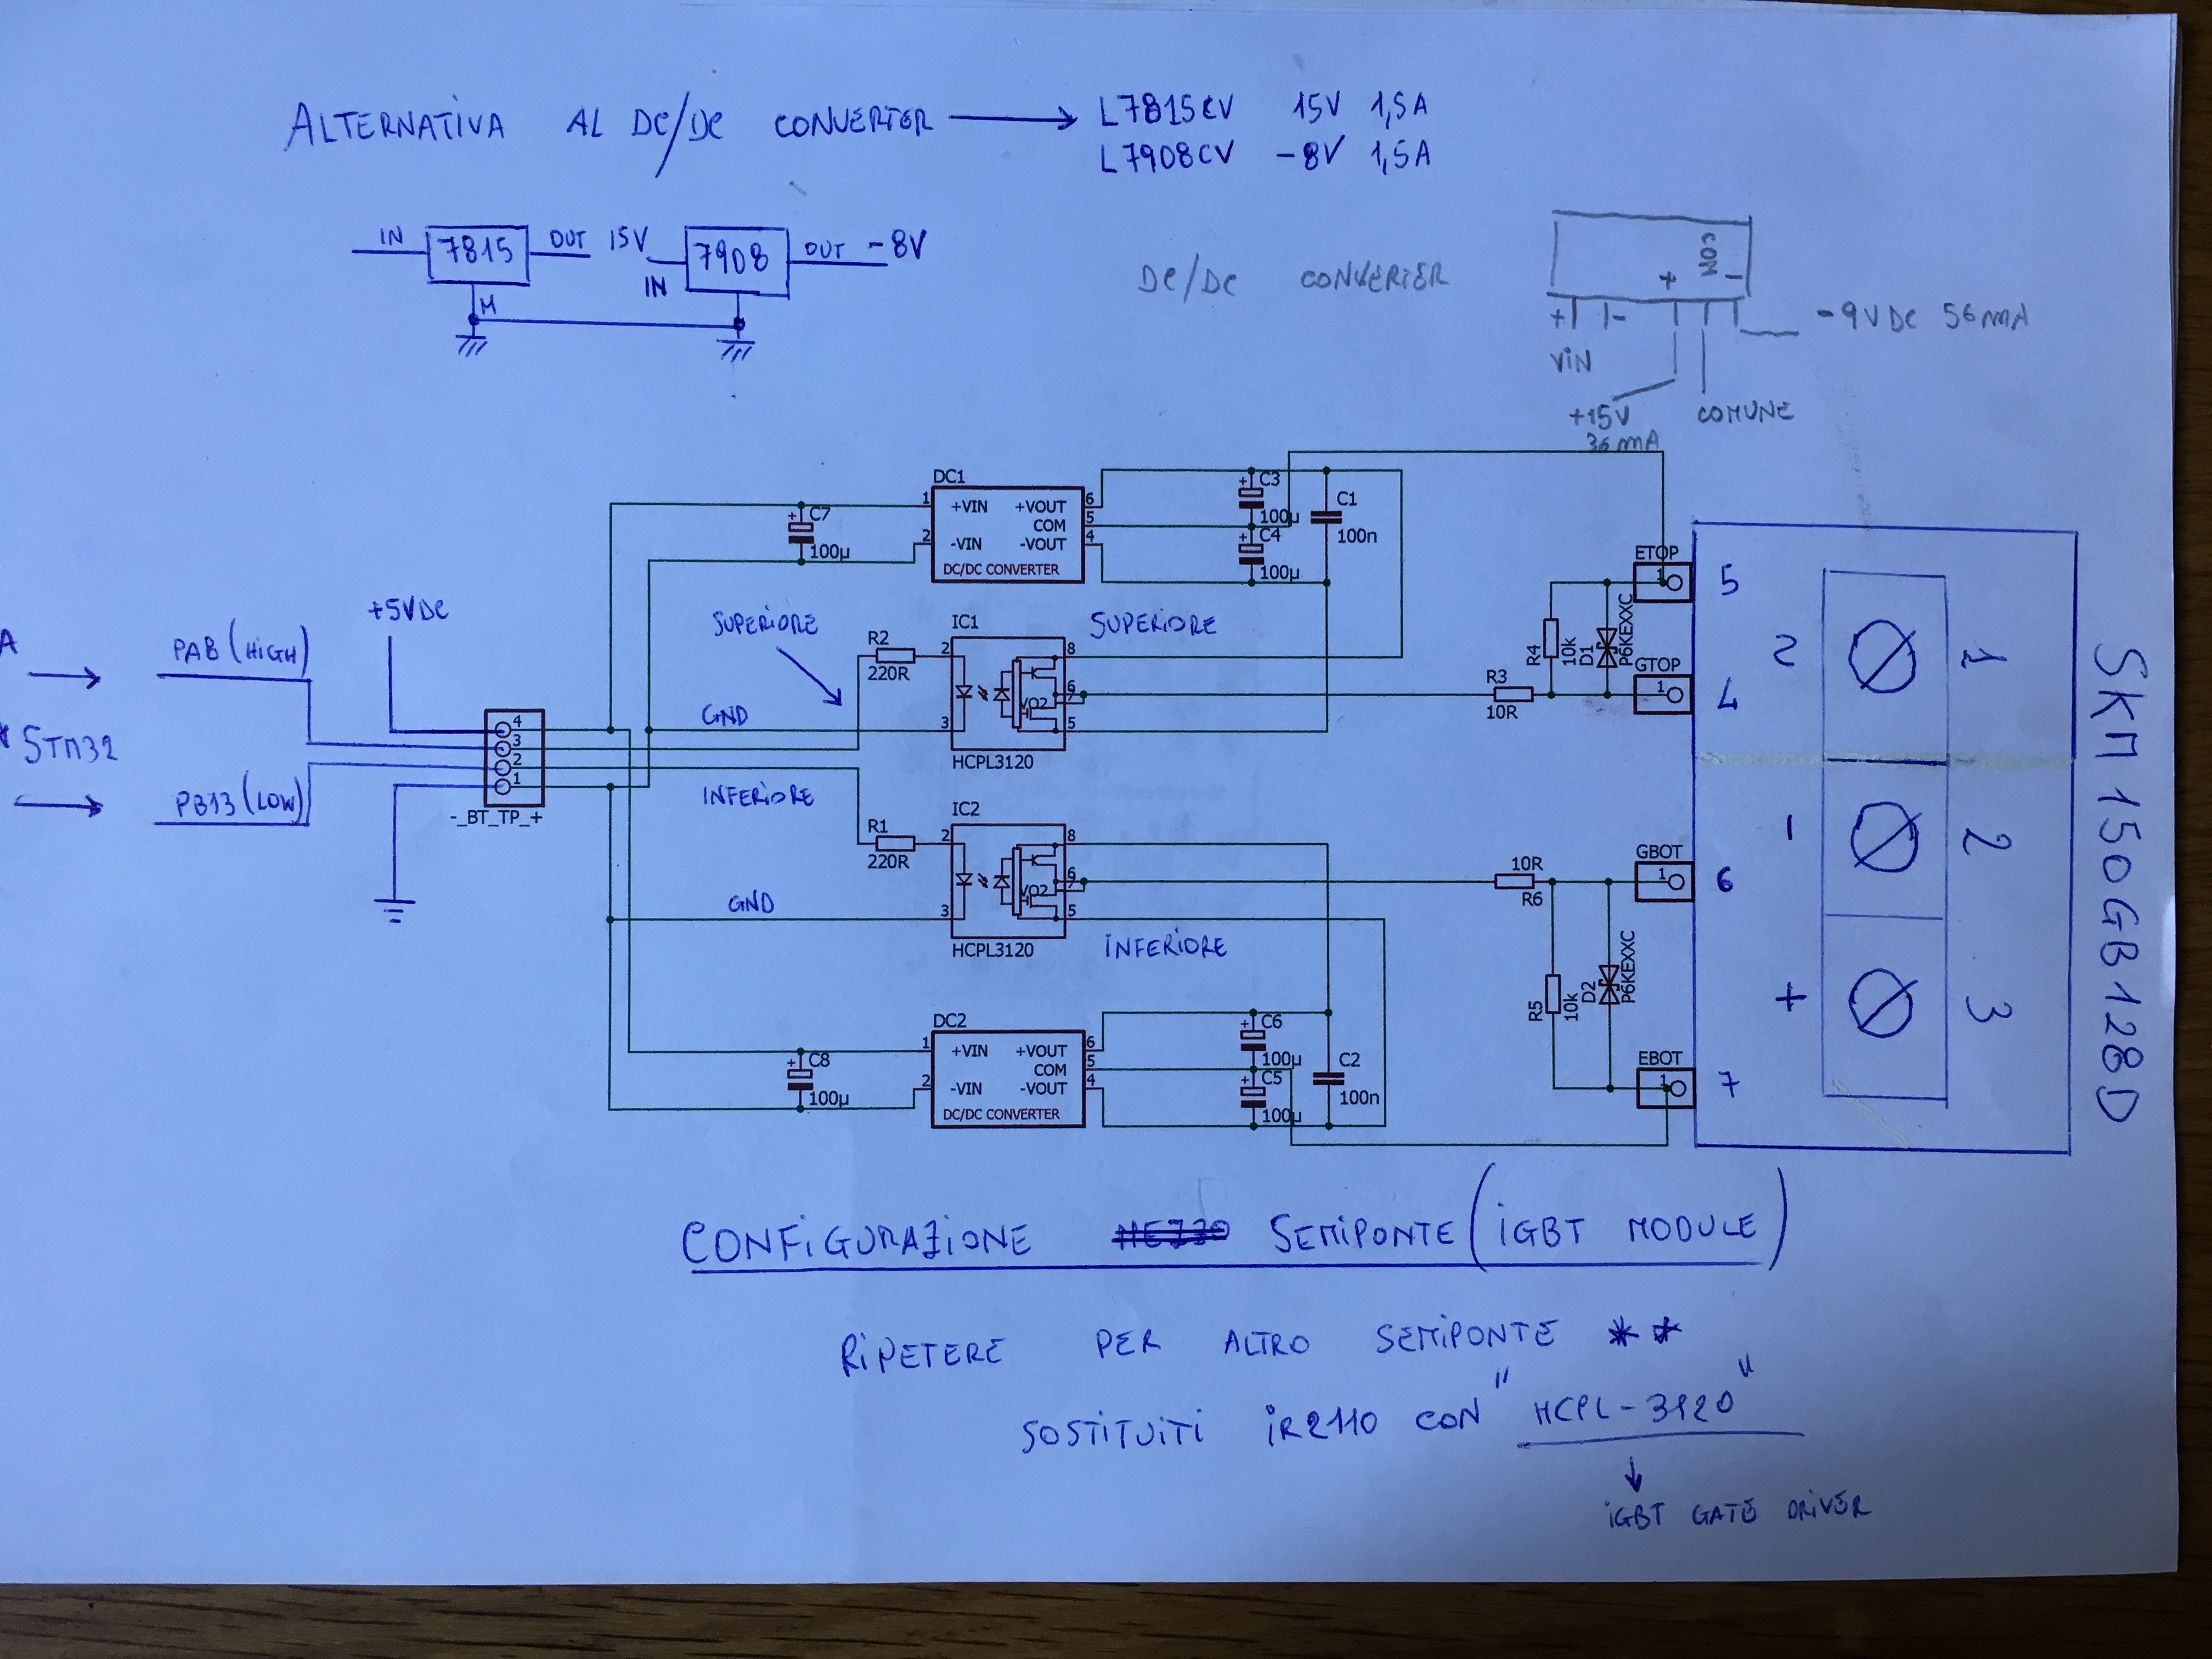 ALTERNATIVA AL DC/DC CONVERTER → L7815CV 15V 1,5A
L7908CV -8V 1,5A
IN 7815 OUT 15V
M
IN 7908 OUT -8V
DC/DC CONVERTER
+ COM -
+ -
VIN
-9VDC 56mA
+15V
36mA
COMUNE
DC1
1 +VIN +VOUT 6
COM 5
2 -VIN -VOUT 4
DC/DC CONVERTER
+ C7
100µ
+ C3
100µ
+ C4
100µ
C1
100n
+5VDC
A
PA8 (HIGH)
STM32
PB13 (LOW)
4
3
2
1
-_BT_TP_+
SUPERIORE
GND
R2
220R
IC1
2
3
8
6
7
5
VO2
HCPL3120
SUPERIORE
R3
10R
R4
10k
D1
P6KEXXC
ETOP
1
5
GTOP
1
4
INFERIORE
GND
R1
220R
IC2
2
3
8
6
7
5
VO2
HCPL3120
INFERIORE
10R
R6
R5
10k
D2
P6KEXXC
GBOT
1
6
EBOT
1
7
DC2
1 +VIN +VOUT 6
COM 5
2 -VIN -VOUT 4
DC/DC CONVERTER
+ C8
100µ
+ C6
100µ
+ C5
100µ
C2
100n
2 1
- 2
+ 3
SKM150GB128D
CONFIGURAZIONE SEMIPONTE (IGBT MODULE)
RIPETERE PER ALTRO SEMIPONTE **
SOSTITUITI IR2110 CON "HCPL-3120"
IGBT GATE DRIVER